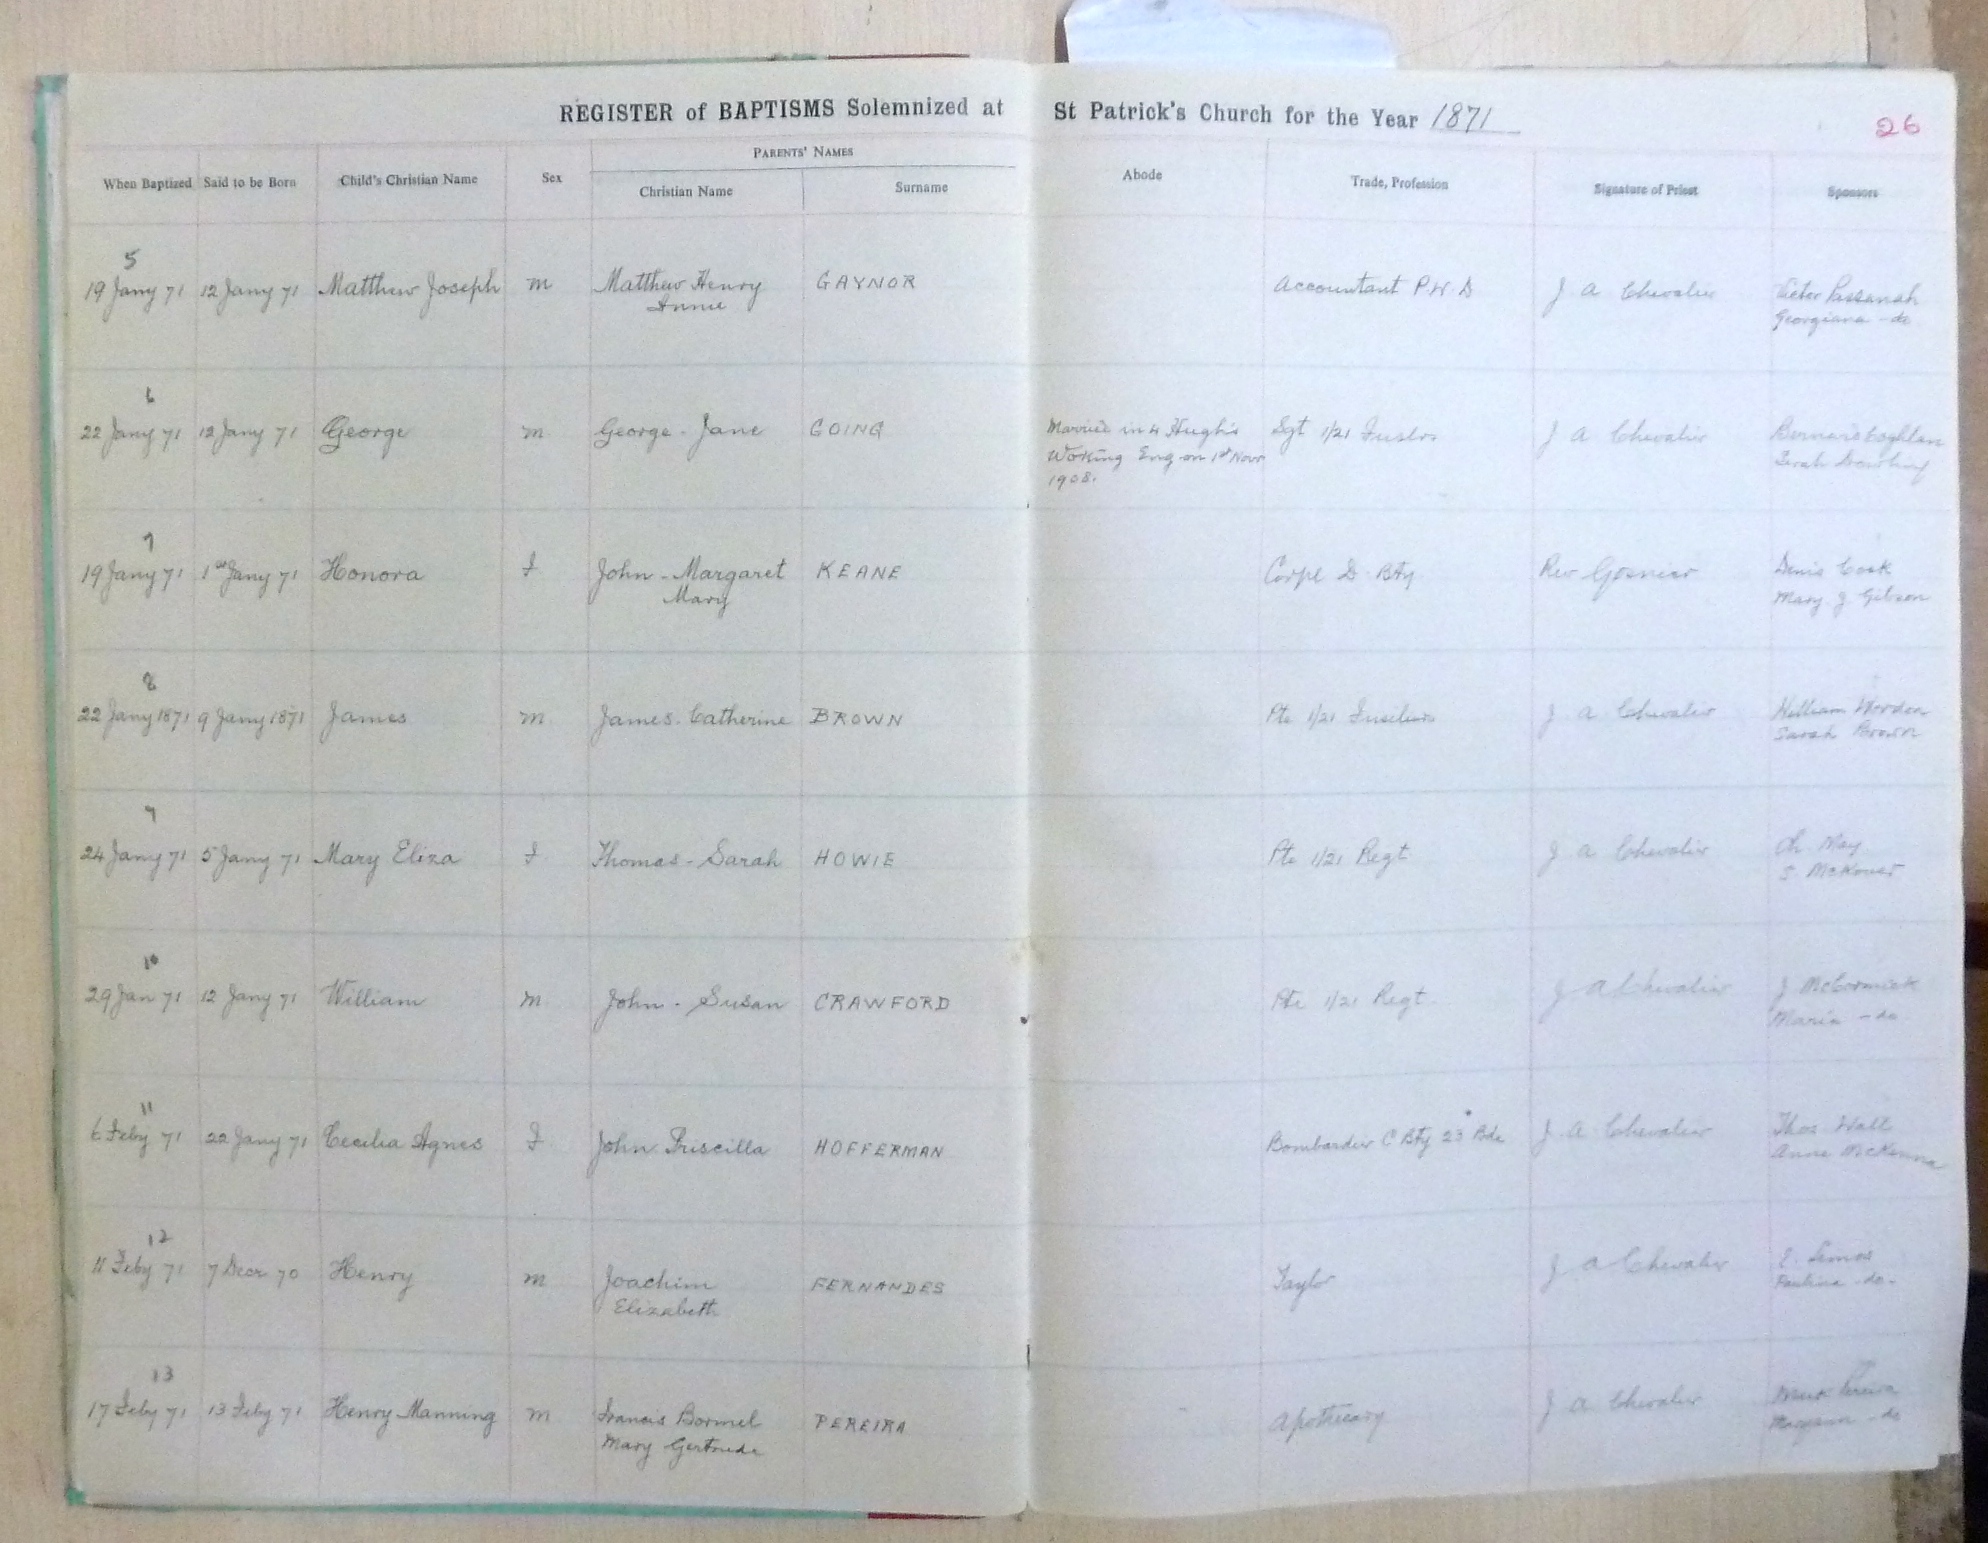 REGISTER of BAPTISMS Solemnized at St Patrick's Church for the Year 1871
26
PARENTS' NAMES
When Baptized Said to be Born Child's Christian Name Sex Christian Name Surname Abode Trade, Profession Signature of Priest Sponsors
5
19 Jany 71 12 Jany 71 Matthew Joseph m Matthew Henry GAYNOR Accountant P.W.D J A Chevalier Victor Passanah
Annie Georgiana - do
6
22 Jany 71 12 Jany 71 George m George - Jane GOING Married in Sgt 1/21 Fuslrs J A Chevalier
Working Eng on 1st Novr Sarah
1908.
7
19 Jany 71 1st Jany 71 Honora F John - Margaret KEANE Corpl D. Bty Rev Denis Cook
Mary Mary J Gibson
8
22 Jany 1871 9 Jany 1871 James m James. Catherine BROWN Pte 1/21 Fusiliers J A Chevalier William
Sarah Brown
9
24 Jany 71 5 Jany 71 Mary Eliza F Thomas - Sarah HOWIE Pte 1/21 Regt J A Chevalier Ch. May
S.
10
29 Jan 71 12 Jany 71 William m John - Susan CRAWFORD Pte 1/21 Regt. J A Chevalier J McCormick
Maria - do
11
6 Feby 71 22 Jany 71 Cecilia Agnes F John Priscilla HOFFERMAN Bombardier C Bty 23 Bde J A Chevalier Thos Wall
Anne McKenna
12
11 Feby 71 7 Decr 70 Henry m Joachim FERNANDES Taylor J A Chevalier Lemos
Elizabeth Paulina - do -
13
17 Feby 71 13 Feby 71 Henry Manning m Francis PEREIRA Apothecary J A Chevalier Pereira
Mary Gertrude - do